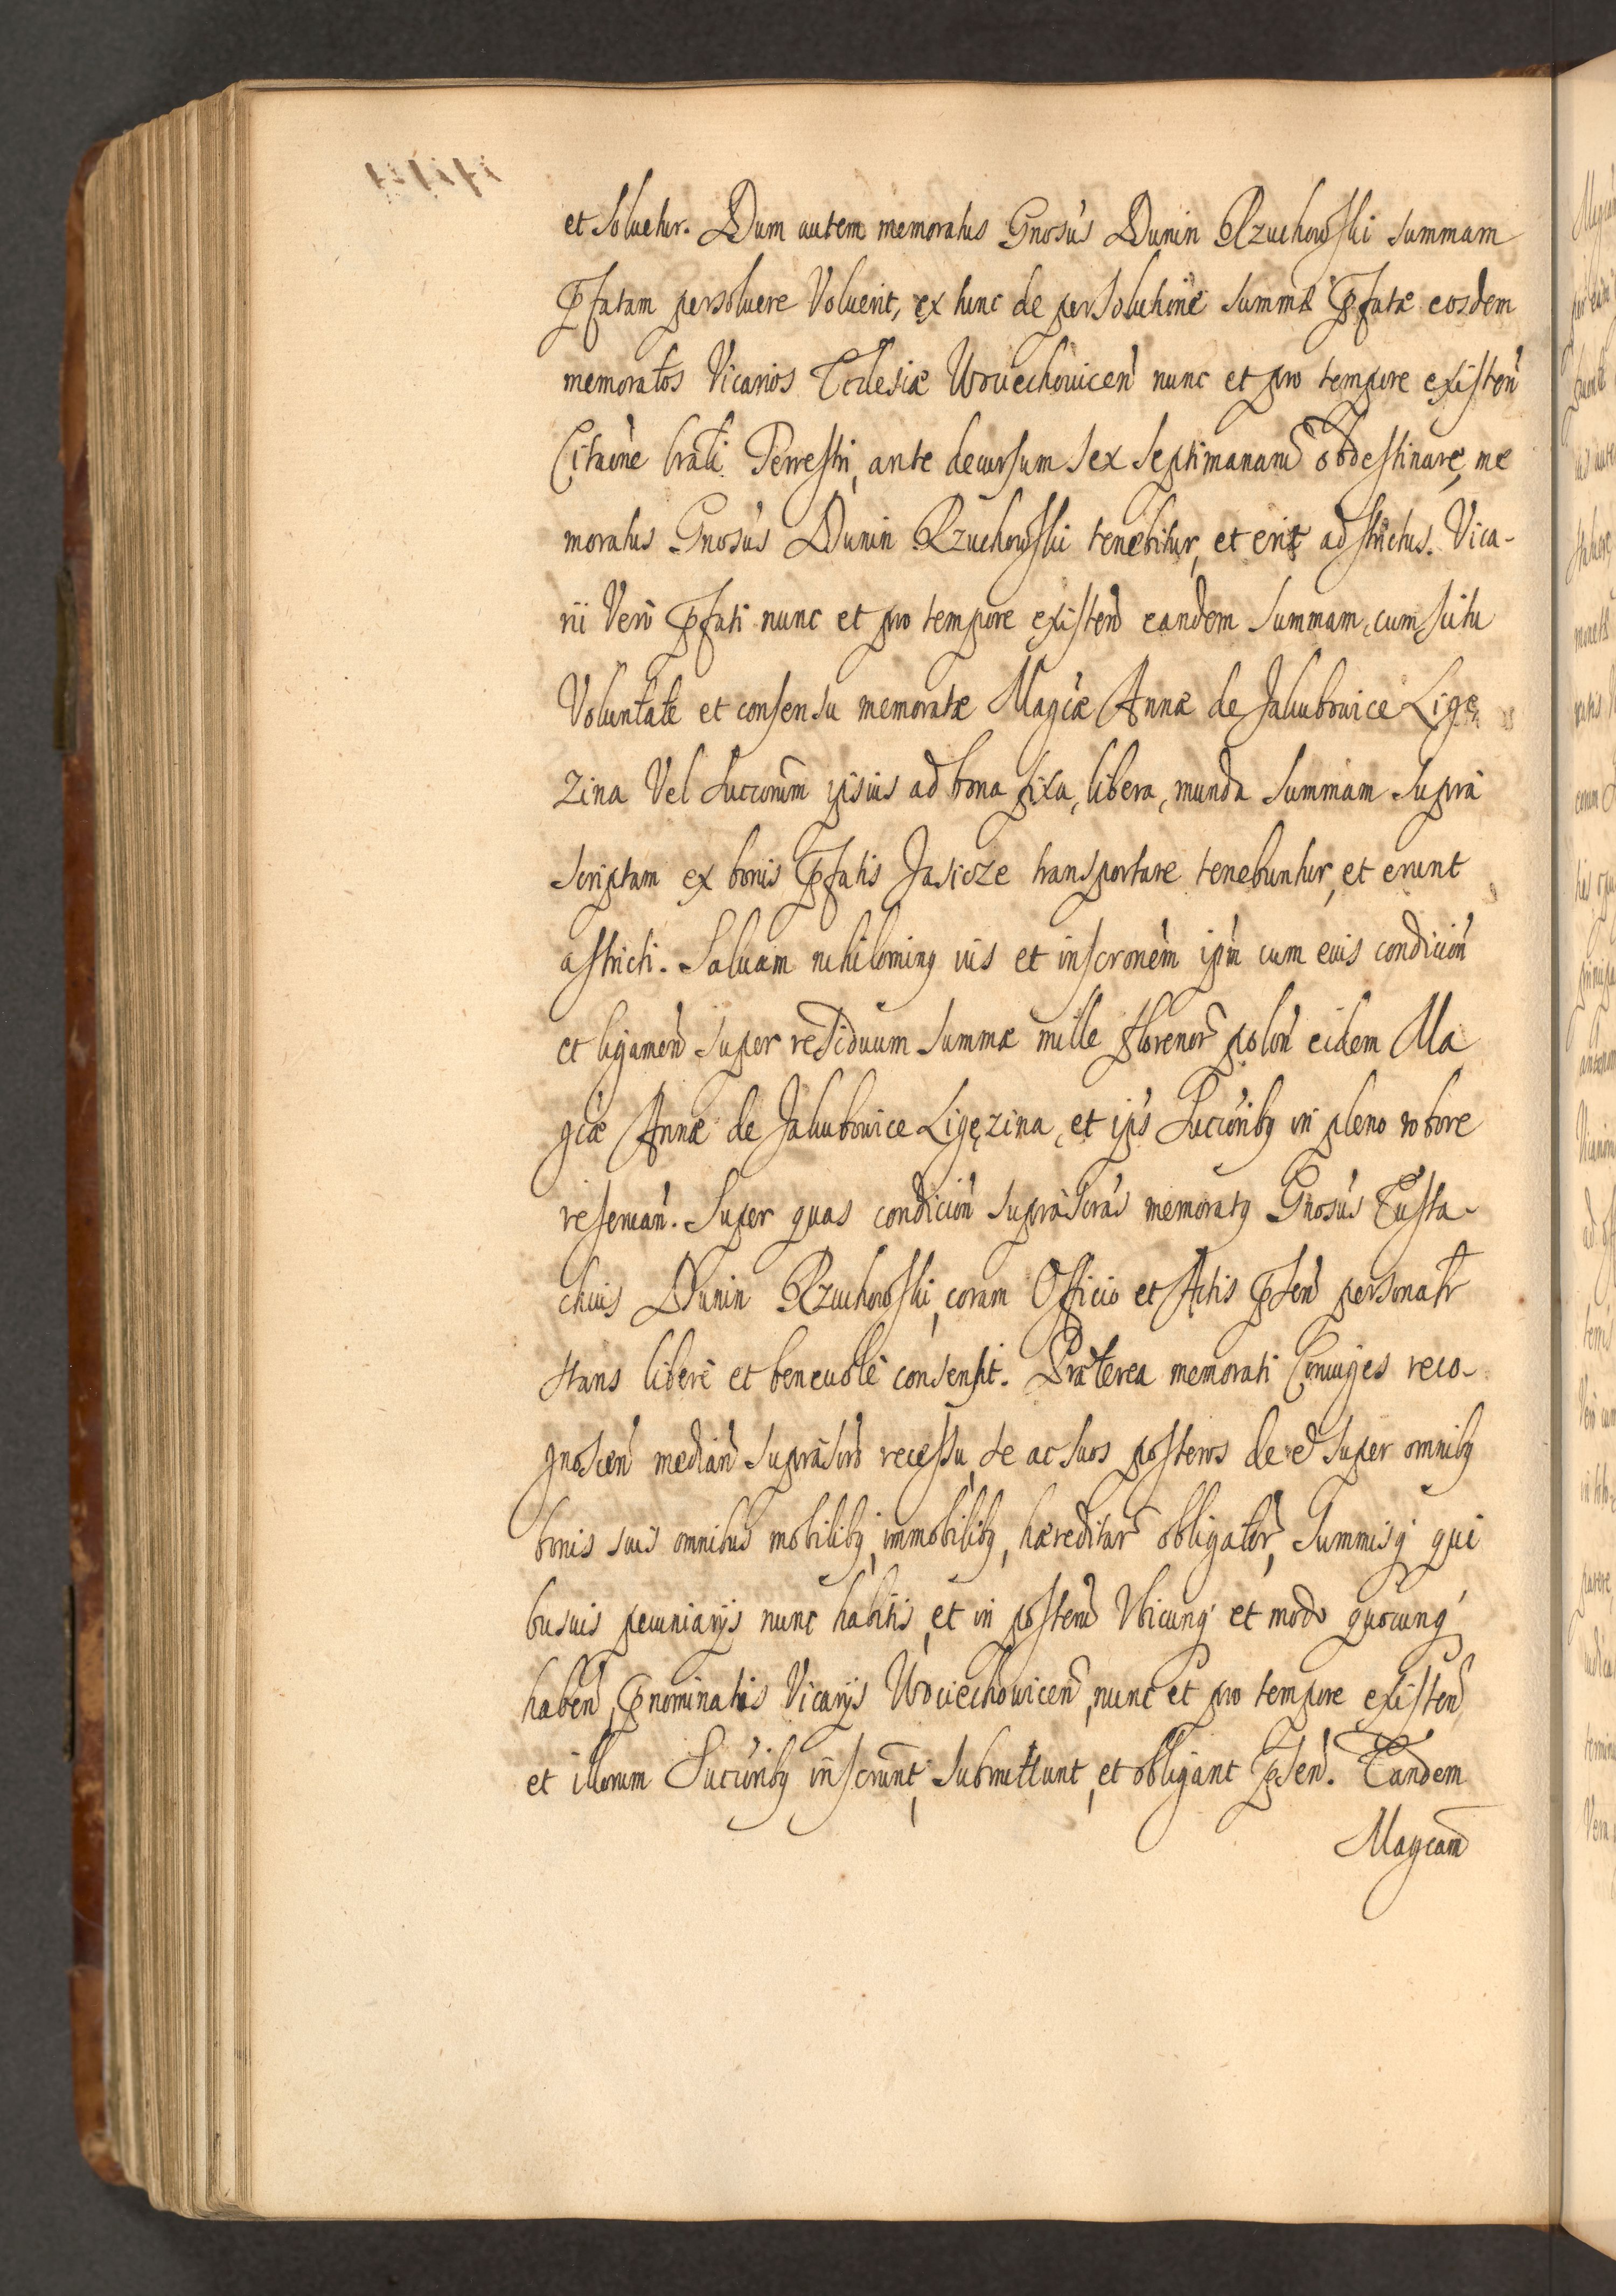 et soluetur. Dum autem memoratus Gnosùs Dunin Rzuchowski summam
Pfatam persoluere Voluerit, ex tunc de persolutione summæ Pfatæ eosdem
memoratos Vicarios Ecclesiæ Woiechouicen̄ nunc et pro tempore existen̄
Citaōne trāli Terrestri, ante decursum sex septimanarū obdestinare, me
moratus Gnosùs Dunin Rzuchowski tenebitur, et erit adstrictus. Vica-
rii Verò Pfati nunc et pro tempore existen̄ eandem summam, cum scitu
Voluntate et consensu memoratæ Magcæ Annæ de Jakubouice Ligę
zina Vel succorum̄ ipsius ad bona fixa, libera, munda summam supra
scriptam ex bonis Pfatis Jasicze transportare tenebuntur, et erunt
astricti. Saluam nihilominq ius et inscronem̄ ipm̄ cum euis condicion̄
et ligamen̄ super residuum summæ mille florenor̄ polon̄ eidem Ma
gcæ Annæ de Jakubouice Ligęzina, et ips̄ succorib9 in pleno robore
reseruan̄. Super quas condicion̄ suprascras̄ memorat9 Gnosùs Eusta-
chius Dunin Rzuchowski, coram Officio et Actis Psen̄ personalr̄
stans liberè et beneuolè consensit. Præterea memorati Coniuges reco-
gnoscen̄ median̄ suprascro recessu, se ac suos posteros de et super omnib9
bonis suis omnibus mobilib9, immobilib9, hæreditar̄ obligator̄, Summisq qui
busuis pecuniarijs nunc habitis, et in posterū Vbicunq et modo quocunq
haben̄, Pnominatis Vicarijs Woiechouicen̄, nunc et pro tempore existen̄
et illorum Succorib9 inscrunt, submittunt, et obligant Psen̄. Tandem
Magcam̄